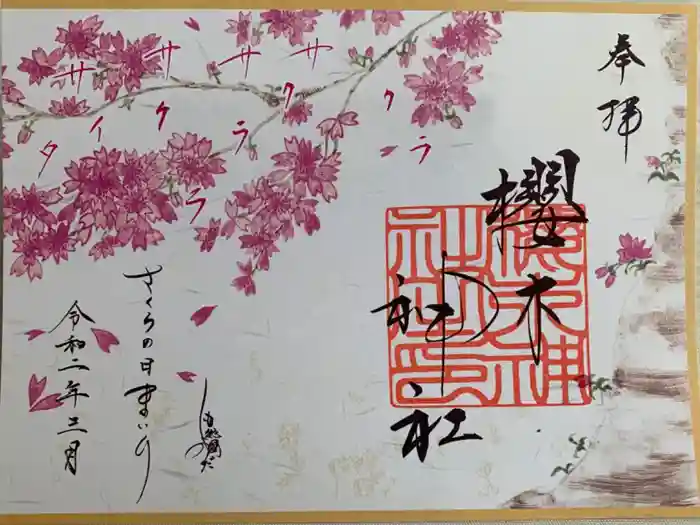 奉拝
櫻木神社
櫻木神
社之印
サクラ
サクラ
サクラ
サイタ
さくらの日まいり
令和二年三月